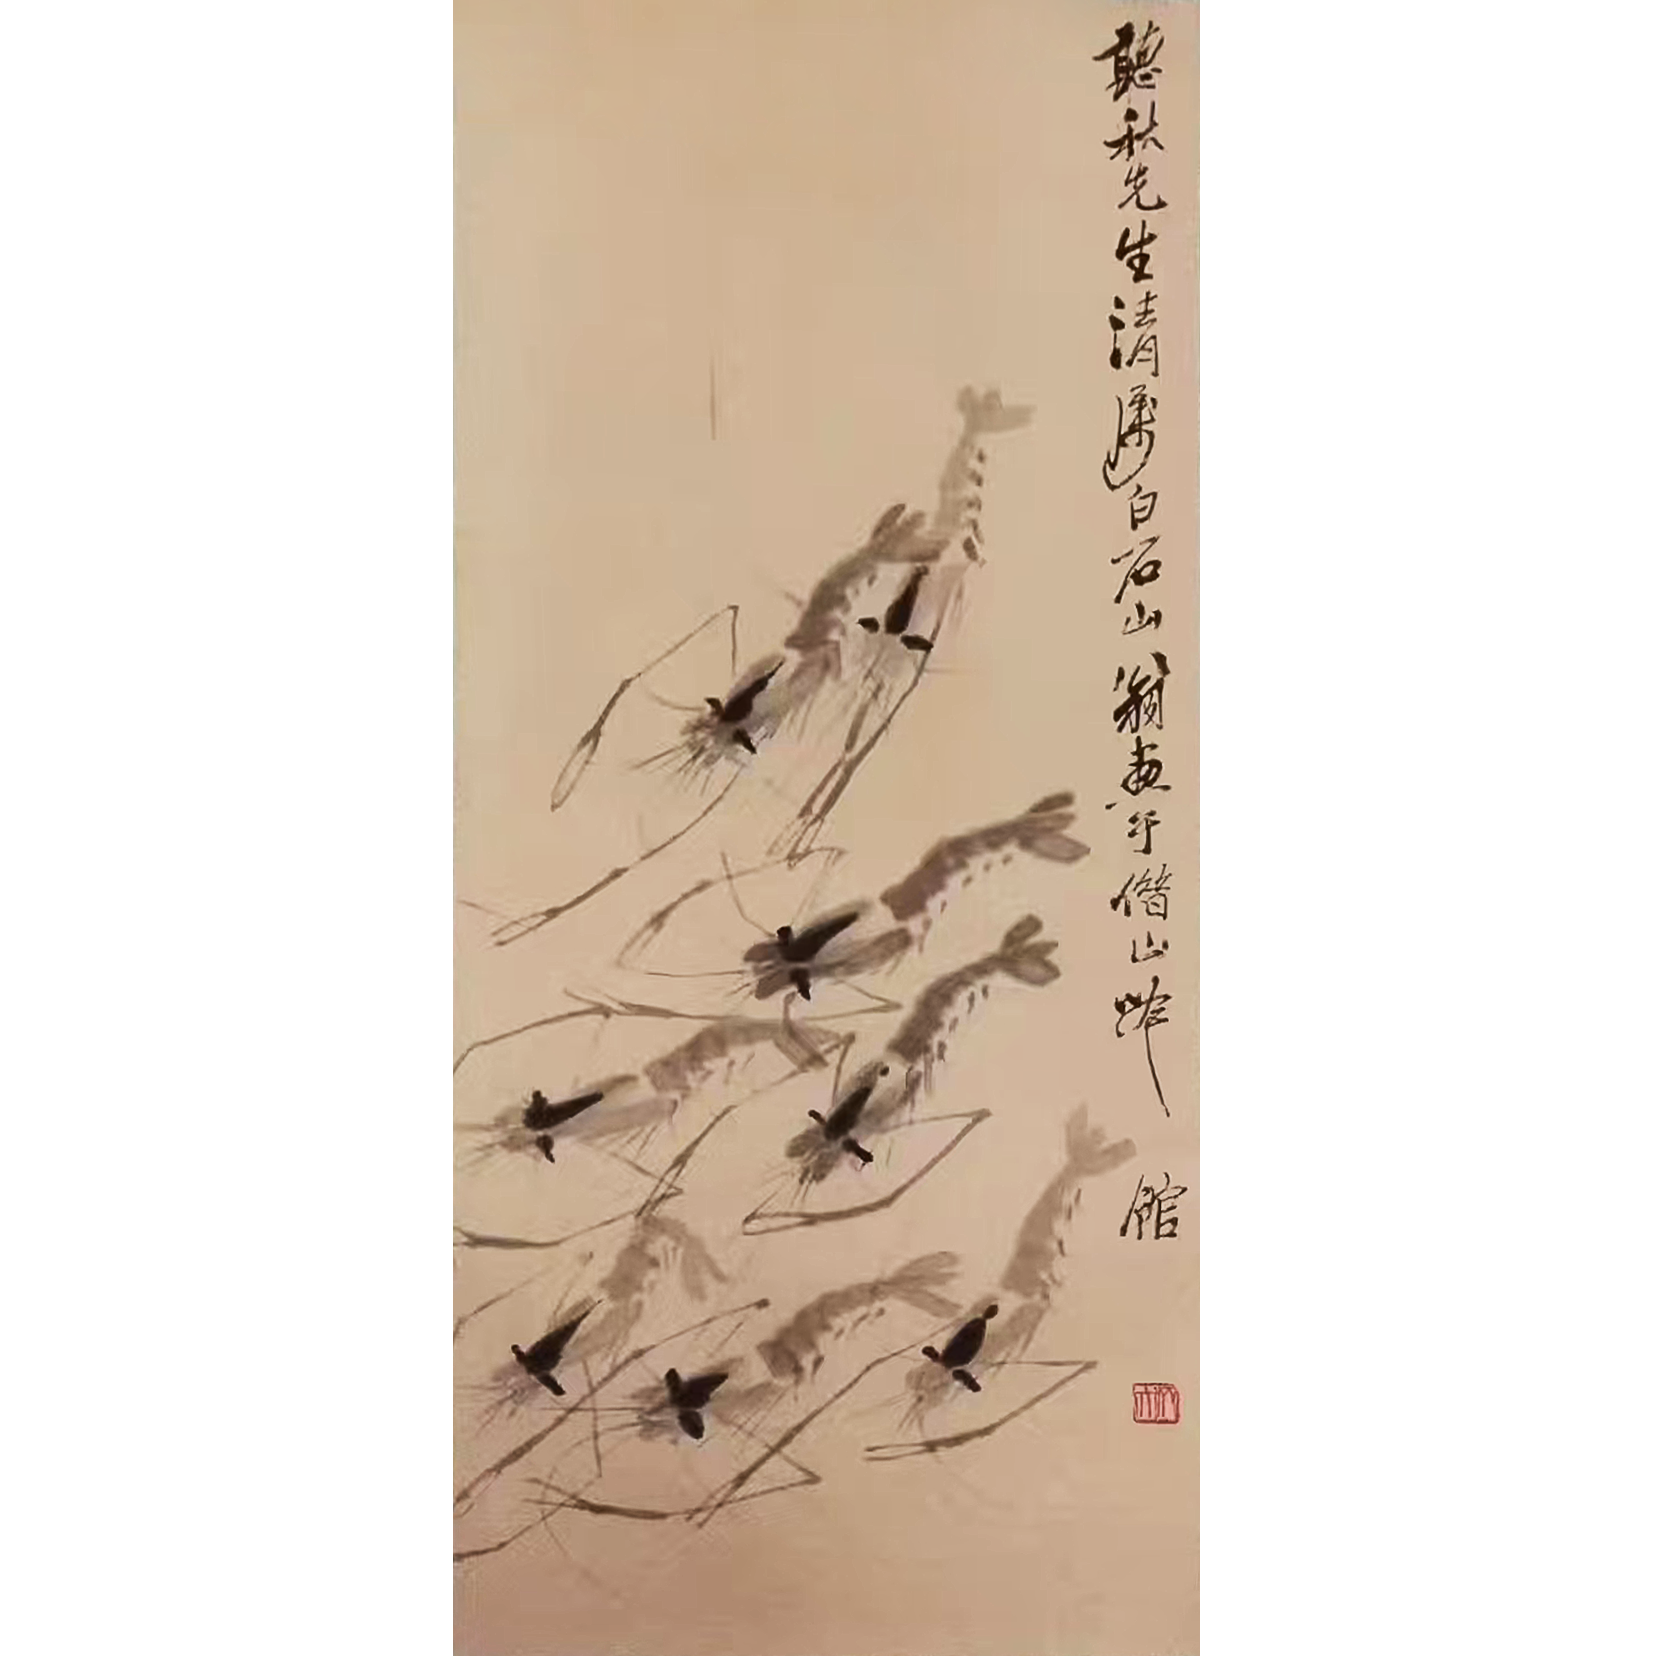 聽秋先生清屬白石山翁畫于借山吟
館